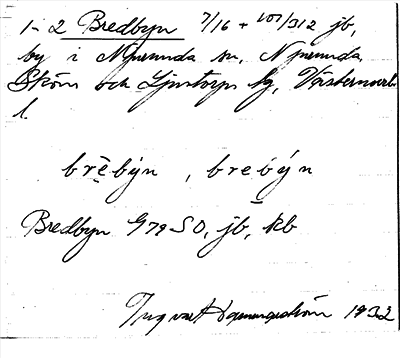 1-2 Bredbyn 7/16 + 101/312 jb,
by i Njurunda sn, Njurunda,
Sköns och Ljustorps tg, Västernorrl.
l.
brẹ̄býn, brebýn
Bredbyn G 79 SO, jb, kb
Ingvar Hammarström 1932